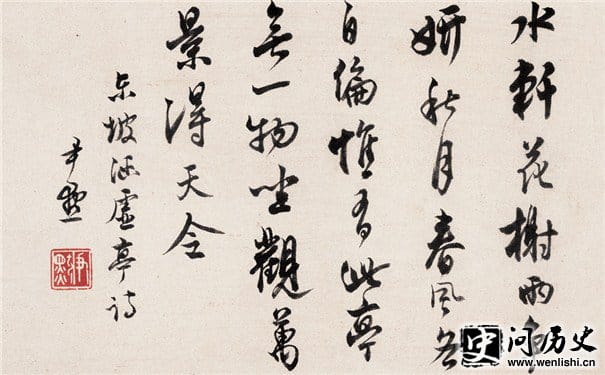 水軒花榭兩爭
妍秋月春風各
自偏惟有此亭
無一物坐觀萬
景得天全
東坡涵虛亭詩
尹默
问历史
www.wenlishi.cn